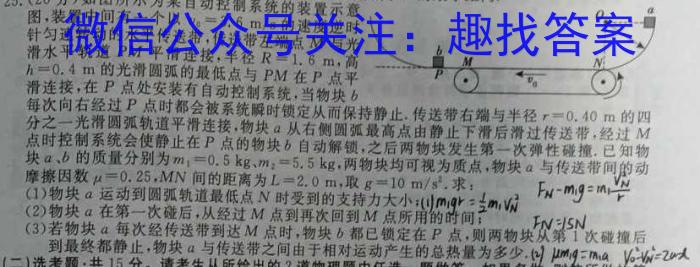 25.(20分)如图所示为某自动控制系统的装置示意
图,装置中间
微信公众号关注：趣找答案
滑水平 平滑连接,半径R=1.6 m,高
h=0.4 m的光滑圆弧的最低点与PM在P点平
滑连接,在P点处安装有自动控制系统,当物块b
每次向右经过P点时都会被系统瞬时锁定从而保持静止.传送带右端与半径r=0.40 m的四
分之一光滑圆弧轨道平滑连接,物块a从右侧圆弧最高点由静止下滑后滑过传送带,经过M
点时控制系统会使静止在P点的物块b自动解锁,之后两物块发生第一次弹性碰撞.已知物
块a、b的质量分别为m₁=0.5 kg、m₂=5.5 kg,两物块均可视为质点,物块a与传送带间的动
摩擦因数μ=0.25,MN间的距离为L=2.0 m,取g=10 m/s².求:
(1)物块a运动到圆弧轨道最低点N时受到的支持力大小;
(1)m₁gr=½m₁v_N²
F_N-m₁g=m₁v_N²/r
(2)物块a在第一次碰后,从经过M点到再次回到M点所用的时间;
F_N=15N
(3)若物块a每次经传送带到达M点时,物块b都已锁定在P点,则两物块从第1次碰撞后
到最终都静止,物块a与传送带之间由于相对运动产生的总热量为多少.
(2)μm₁g=m₁a
(二)选考题:共15分.请考生从所给出的2道物理题中任选一题做答.
O a
b
P M N
v₀